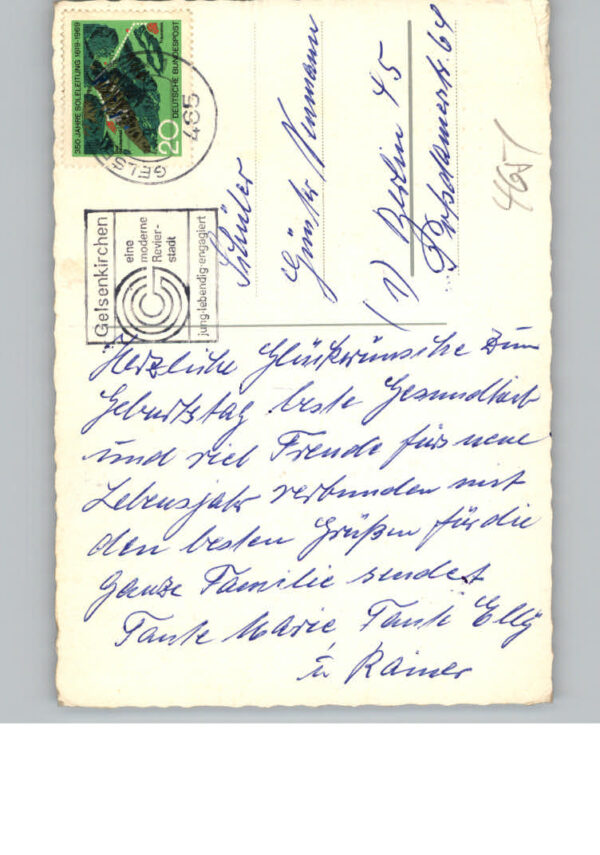 350 JAHRE SOLELEITUNG 1619-1969
20 DEUTSCHE BUNDESPOST
GELSE
465
Gelsenkirchen
eine
moderne
Revier-
stadt
jung-lebendig-engagiert
Schüler
Günter Neumann
(1) Berlin 45
64
465
Herzliche Glückwünsche zum
Geburtstag beste Gesundheit
und viel Freude fürs neue
Lebensjahr verbunden mit
den besten Grüßen für die
ganze Familie sendet
Tante Marie, Tante Elly
u. Rainer